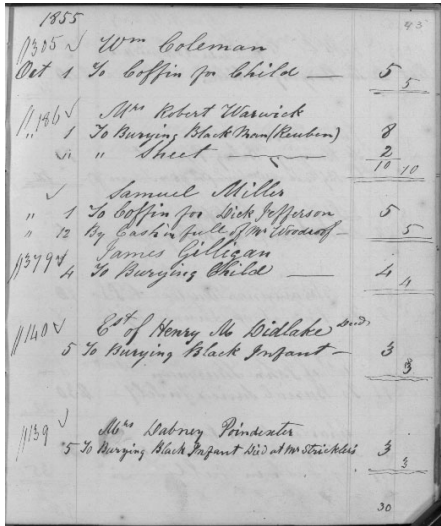 1855 95
305 Wm Coleman
Oct 1 To Coffin for Child — 5
5
186 Mrs Robert Warwick
" 1 To Burying Black Man (Reuben) 8
" " " Sheet — 2
10 10
Samuel Miller
" 1 To Coffin for Dick Jefferson 5
" 12 By Cash in full of Mr Woodroof — 5
379 James Gilligan
4 To Burying Child — 4
4
140 Est of Henry M Didlake Decd
5 To Burying Black Infant — 3
3
139 Mrs Dabney Poindexter
5 To Burying Black Infant Died at Mr Strickler's 3
3
30